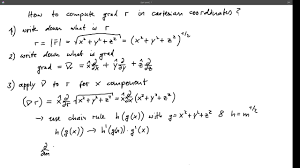 How to compute grad r in cartesian coordinates?
1) write down what is r
r = |r⃗| = √(x²+y²+z²) = (x²+y²+z²)^(1/2)
2) write down what is grad
grad = ∇ = x̂ ∂/∂x + ŷ ∂/∂y + ẑ ∂/∂z
3) apply ∇ to r for x component
(∇r) = x̂ ∂/∂x √(x²+y²+z²) = x̂ ∂/∂x (x²+y²+z²)
→ use chain rule h(g(x)) with g=x²+y²+z² & h=m^(1/2)
h(g(x)) → h'(g(x)) · g'(x)
∂/∂m